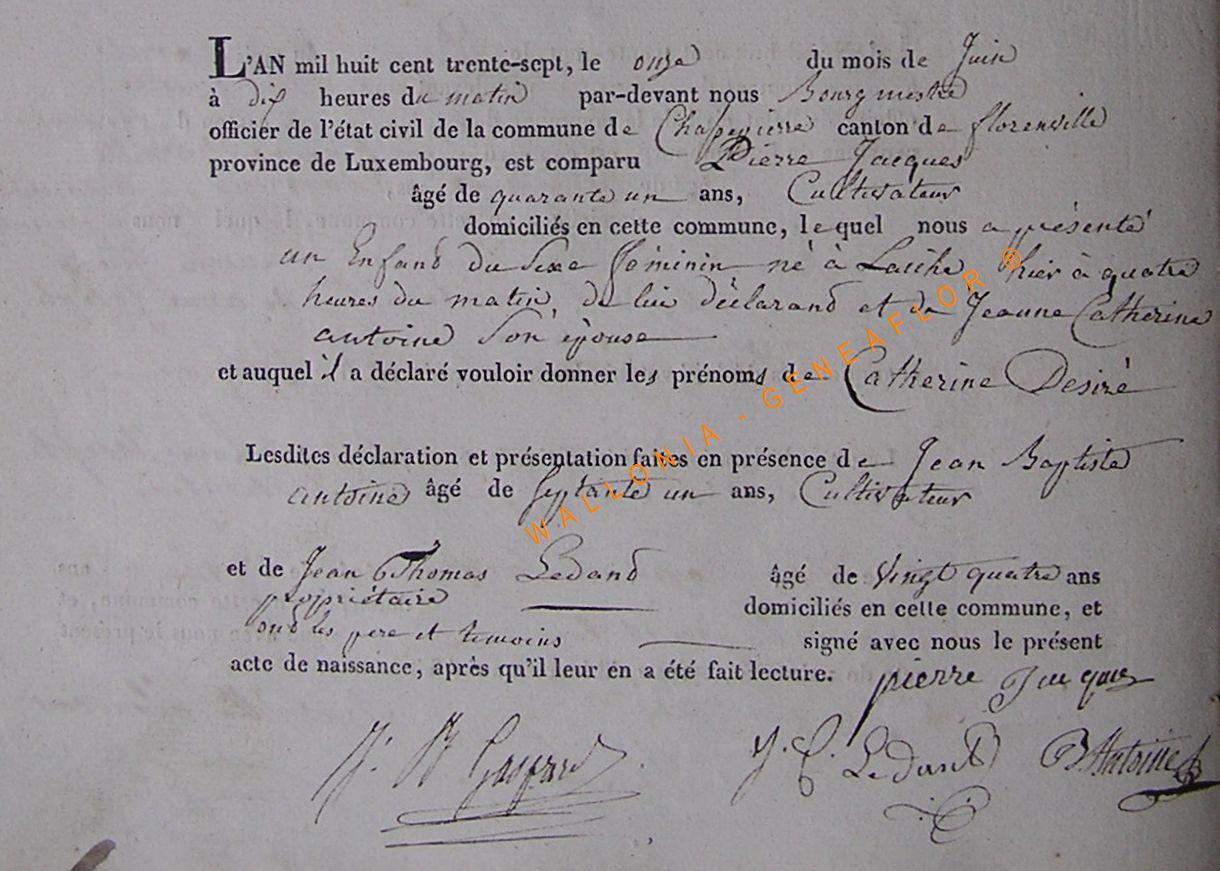 L'AN mil huit cent trente-sept, le onze du mois de Juin
à dix heures du matin par-devant nous Bourgmestre
officier de l'état civil de la commune de canton de florenville
province de Luxembourg, est comparu Pierre Jacques
âgé de quarante un ans, Cultivateur
domiciliés en cette commune, lequel nous a présenté
un Enfand du sexe féminin né à Laiche hier à quatre
heures du matin, de lui déclarand et de Jeanne Catherine
antoine Son épouse
et auquel il a déclaré vouloir donner les prénoms de Catherine Desiré
Lesdites déclaration et présentation faites en présence de Jean Baptiste
antoine âgé de septante un ans, Cultivateur
et de Jean Thomas Ledand âgé de Vingt quatre ans
propriétaire domiciliés en cette commune, et
ond les pere et temoins signé avec nous le présent
acte de naissance, après qu'il leur en a été fait lecture. pierre Jacques
J. B Gaspard J. T. Ledand B Antoine
WALLONIA - GENEAFLOR ®